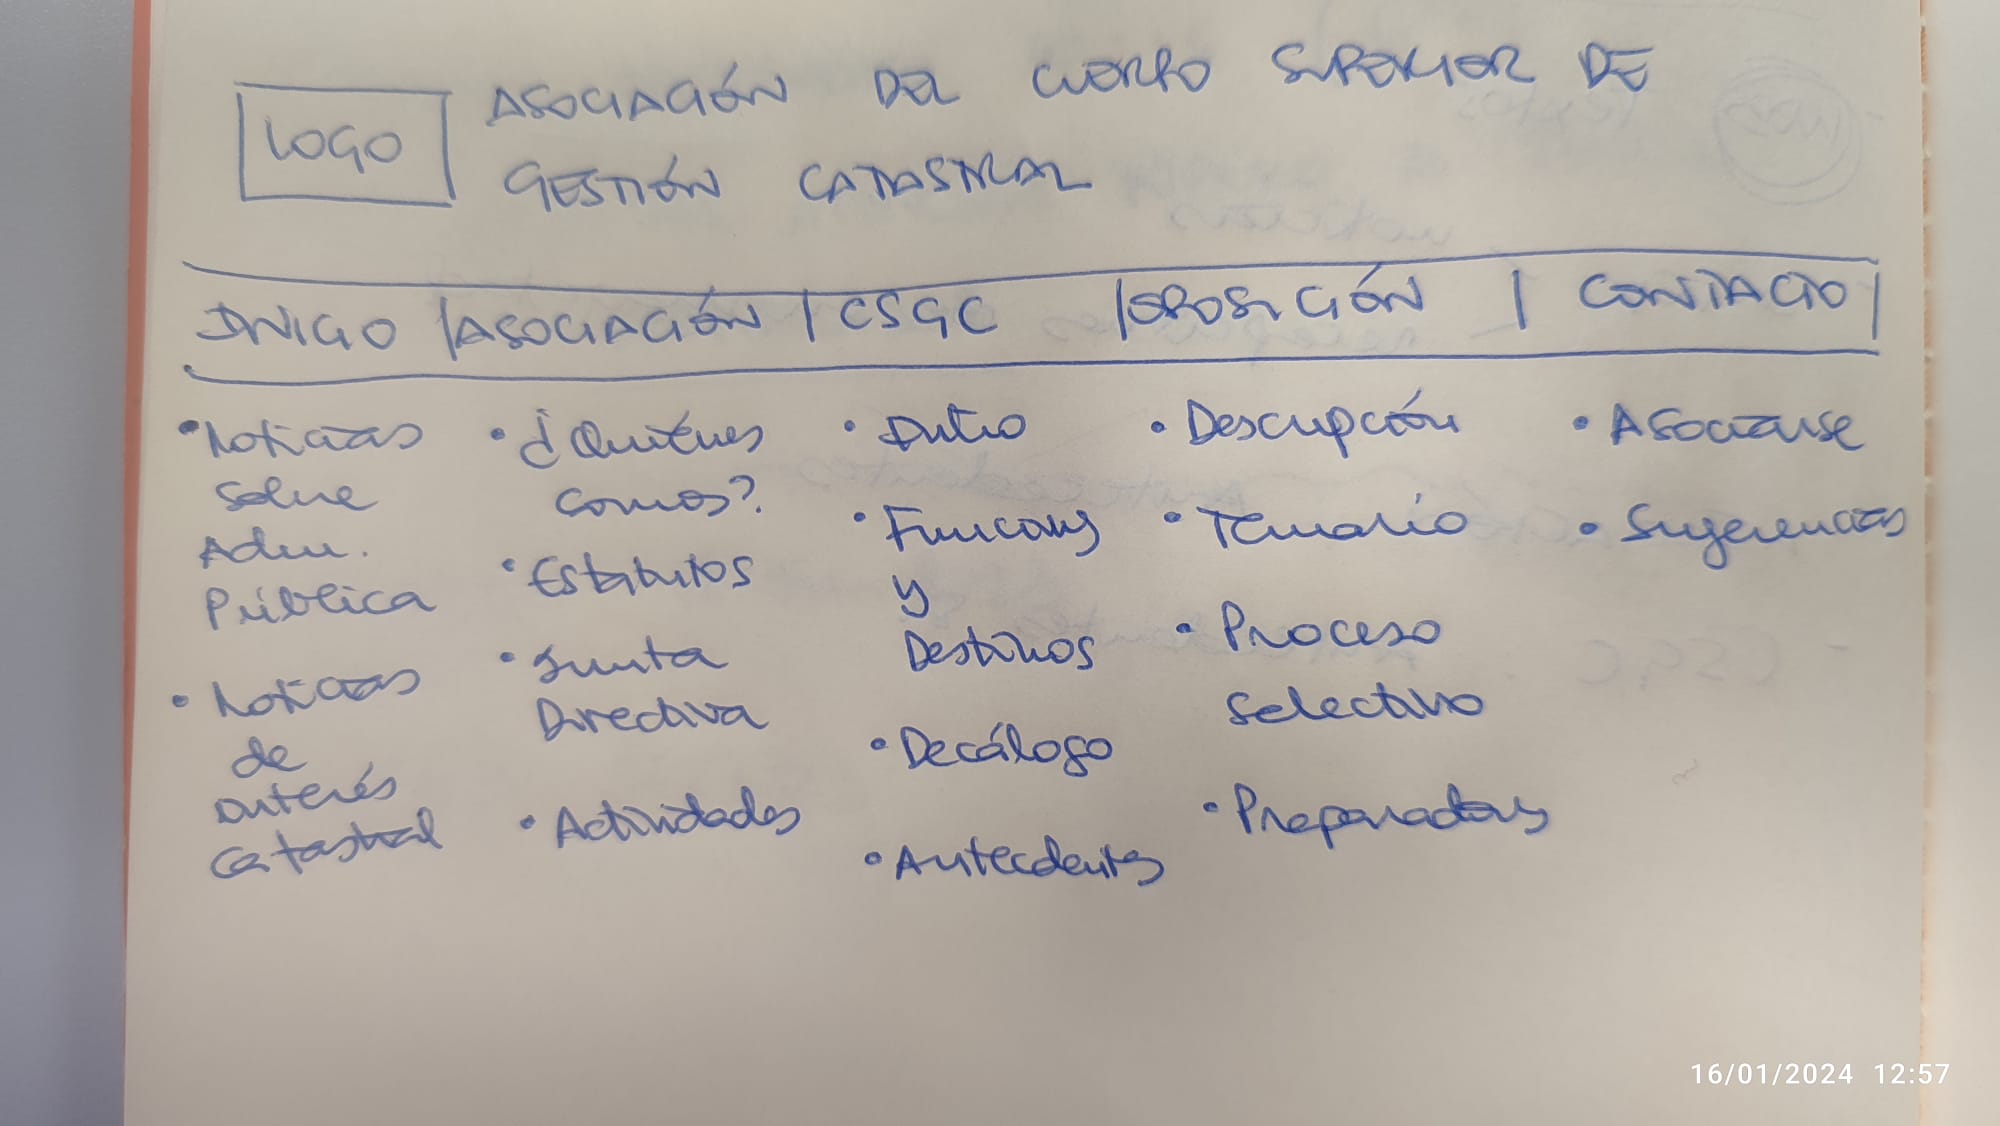 LOGO
ASOCIACIÓN DEL CUERPO SUPERIOR DE
GESTIÓN CATASTRAL
INICIO | ASOCIACIÓN | CSGC | OPOSICIÓN | CONTACTO |
• Noticias
sobre
Adm.
Pública
• Noticias
de
interés
catastral
• ¿Quiénes
somos?
• Estatutos
• Junta
Directiva
• Actividades
• Intro
• Funciones
y
Destinos
• Decálogo
• Antecedentes
• Descripción
• Temario
• Proceso
selectivo
• Preparadores
• Asociarse
• Sugerencias
16/01/2024 12:57